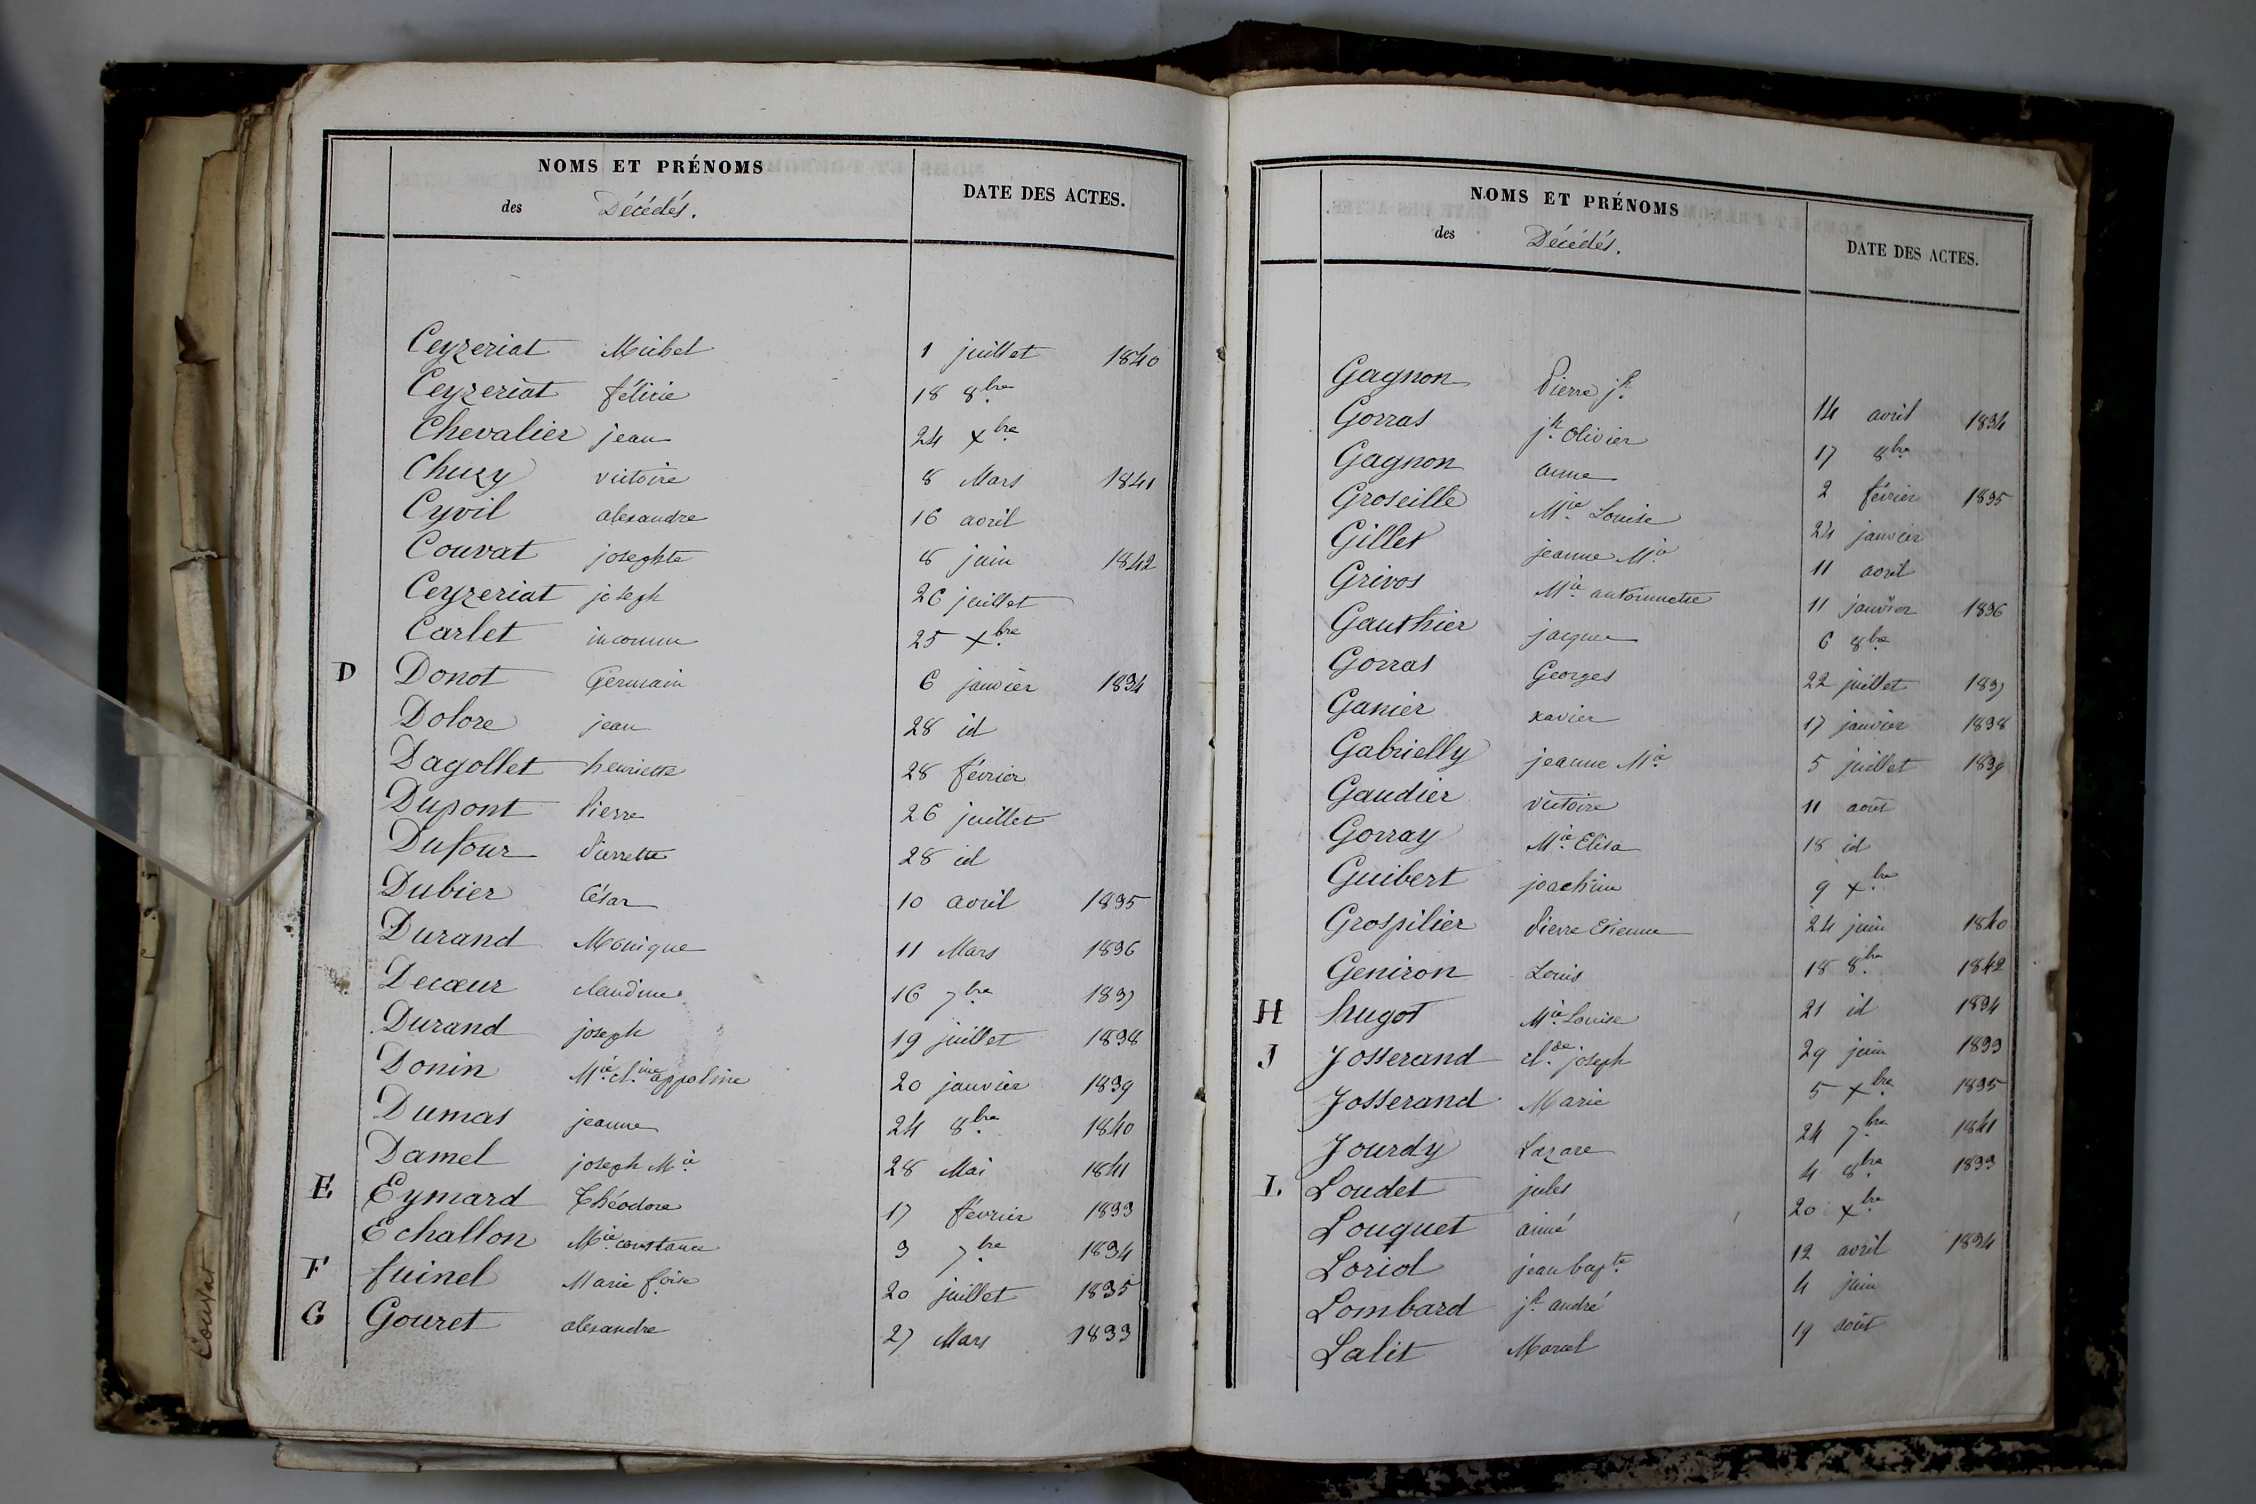 NOMS ET PRÉNOMS
des Décédés.
DATE DES ACTES.
Ceyzeriat Michel 1 juillet 1840
Ceyzeriat félicie 18 8bre
Chevalier jean 24 xbre
Chuzy victoire 8 Mars 1841
Cyvil alexandre 16 avril
Couvat josephte 8 juin 1842
Ceyzeriat joseph 26 juillet
Carlet inconnu 25 xbre
D Donot Germain 6 janvier 1834
Dolore jean 28 id
Dagollet henriette 28 février
Dupont Pierre 26 juillet
Dufour Pierrette 28 id
Dubier César 10 avril 1835
Durand Monique 11 Mars 1836
Decœur claudine 16 7bre 1837
Durand joseph 19 juillet 1838
Donin Mie cl.ine appoline 20 janvier 1839
Dumas jeanne 24 8bre 1840
Damel joseph Mie 28 Mai 1841
E Eymard Théodore 17 février 1833
Echallon Mie constance 3 7bre 1834
F fuinel Marie foise 20 juillet 1835
G Gouret alexandre 27 Mars 1833
Coutat
NOMS ET PRÉNOMS
des Décédés.
DATE DES ACTES.
Gagnon Pierre jh 14 avril 1834
Gorras jh Olivier 17 8bre
Gagnon anne 2 février 1835
Groseille Mie Louise 24 janvier
Gillet jeanne Mie 11 avril
Grivos Mie antoinnette 11 janvier 1836
Gauthier jacques 6 8bre
Gorras Georges 22 juillet 1837
Ganier xavier 17 janvier 1838
Gabrielly jeanne Mie 5 juillet 1839
Gaudier victoire 11 août
Gorray Mie Elisa 18 id
Guibert joachim 9 xbre
Grospilier Pierre Etienne 24 juin 1840
Geniron Louis 18 8bre 1842
H hugot Mie Louise 21 id 1834
J Josserand cl.de joseph 29 juin 1833
Josserand Marie 5 xbre 1835
Jourdy Lazare 24 7bre 1841
L Loudet jules 4 8bre 1833
Louquet aimé 20 xbre
Loriol jean bapte 12 avril 1834
Lombard jh andré 4 juin
Lalit Marcel 19 août